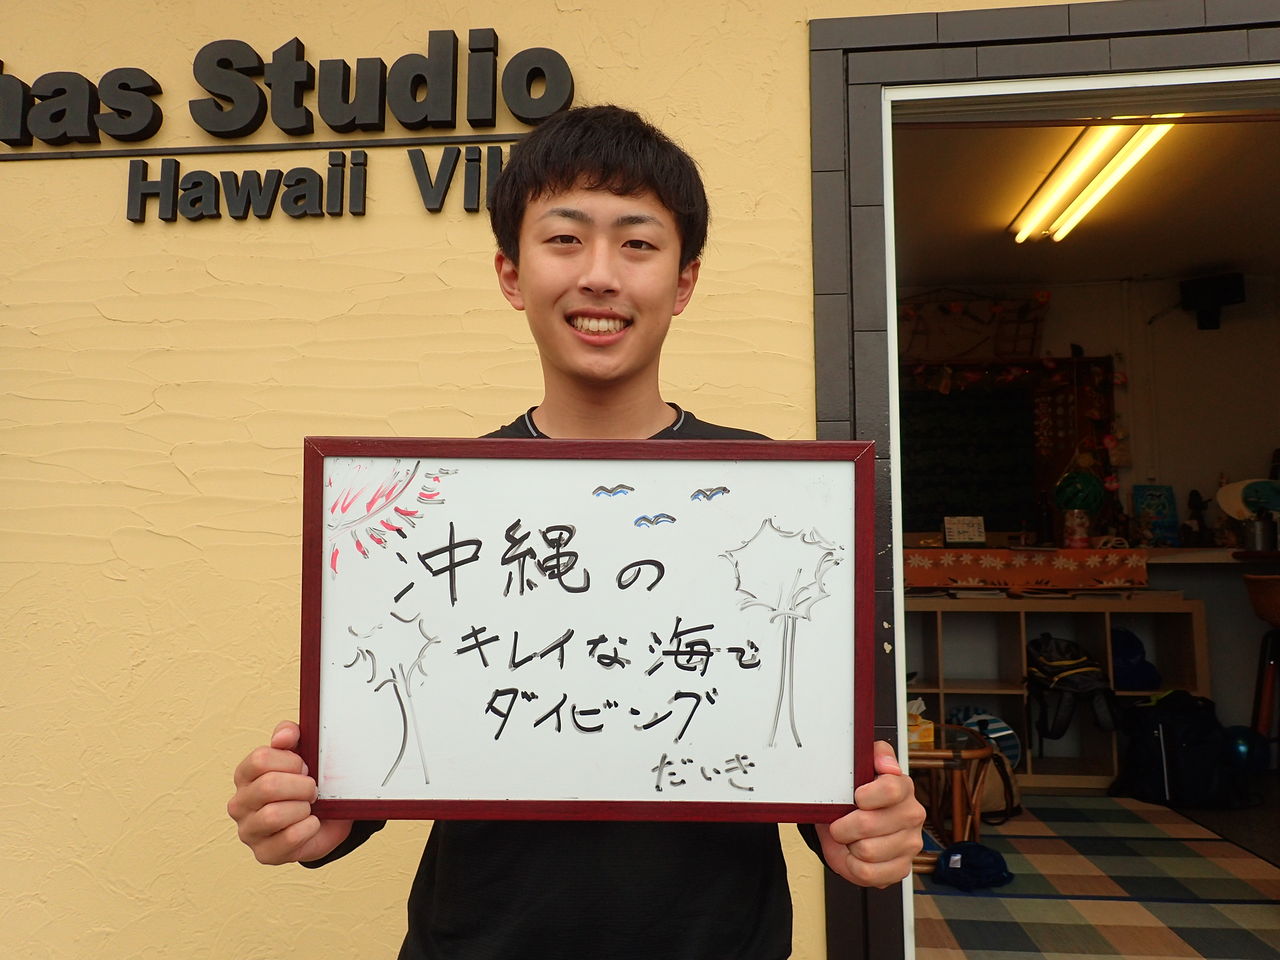 has Studio
Hawaii Vil
沖縄の
キレイな海で
ダイビング
だいき